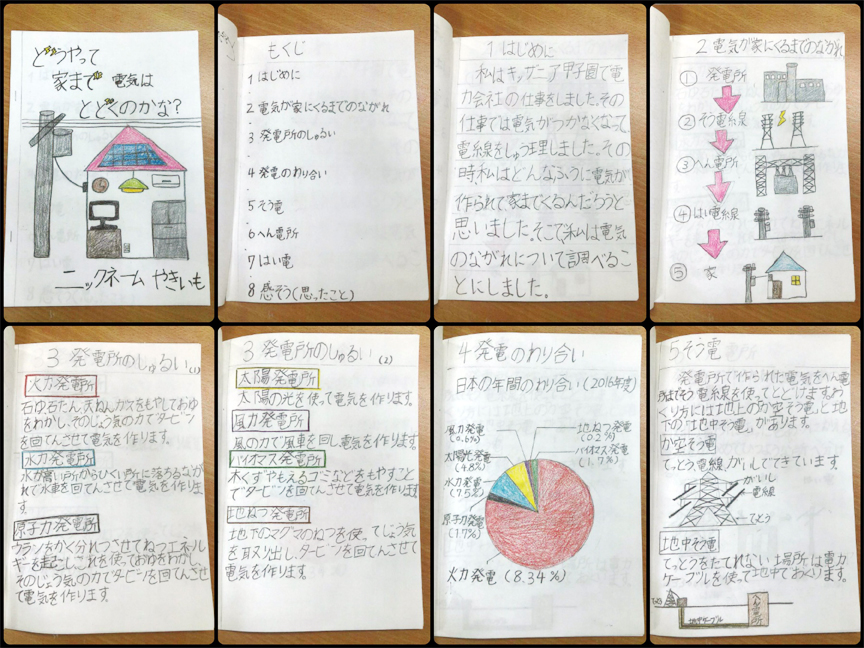 どうやって
家まで 電気は
とどくのかな?
ニックネーム やきいも
もくじ
1 はじめに
2 電気が家にくるまでのながれ
3 発電所のしゅるい
4 発電のわり合い
5 そう電
6 へん電所
7 はい電
8 感そう(思ったこと)
1 はじめに
私はキッザニア甲子園で電
力会社の仕事をしました。その
仕事では電気がつかなくなって、
電線をしゅう理しました。その
時私はどんなふうに電気が
作られて家までくるんだろうと
思いました。そこで私は電気
のながれについて調べるこ
とにしました。
2 電気が家にくるまでのながれ
① 発電所
② そう電線
③ へん電所
④ はい電線
⑤ 家
3 発電所のしゅるい(1)
火力発電所
石ゆ石たん、天ねんガスをもやしておゆ
をわかし、そのじょう気の力でタービン
を回てんさせて電気を作ります。
水力発電所
水が高い所からひくい所に落ちるなが
れで水車を回てんさせて電気を作りま
す。
原子力発電所
ウランをかく分れつさせてねつエネル
ギーを起こしこれを使っておゆをわかし、
そのじょう気の力でタービンを回てんさせ
て電気を作ります。
3 発電所のしゅるい(2)
太陽発電所
太陽の光を使って電気を作ります。
風力発電所
風の力で風車を回し電気を作ります。
バイオマス発電所
木くずやもえるゴミなどをもやすこと
でタービンを回てんさせて電気を作ります。
地ねつ発電所
地下のマグマのねつを使ってじょう気
を取り出し、タービンを回てんさせて
電気を作ります。
4 発電のわり合い
日本の年間のわり合い(2016年度)
風力発電
(0.6%)
太陽光発電
(4.8%)
水力発電
(7.5%)
原子力発電
(1.7%)
火力発電(8.34%)
地ねつ発電
(0.2%)
バイオマス発電
(1.7%)
5 そう電
発電所で作られた電気をへん電
所までそう電線を使ってとどけますおく
り方には地上のか空そう電と地
下の「地中そう電」があります。
か空そう電
てっとう電線がいしでできています。
がいし
電線
てっとう
地中そう電
てっとうをたてれない場所は電力
ケーブルを使って地中でおくります。
てっとう
地中ケーブル
へん電所